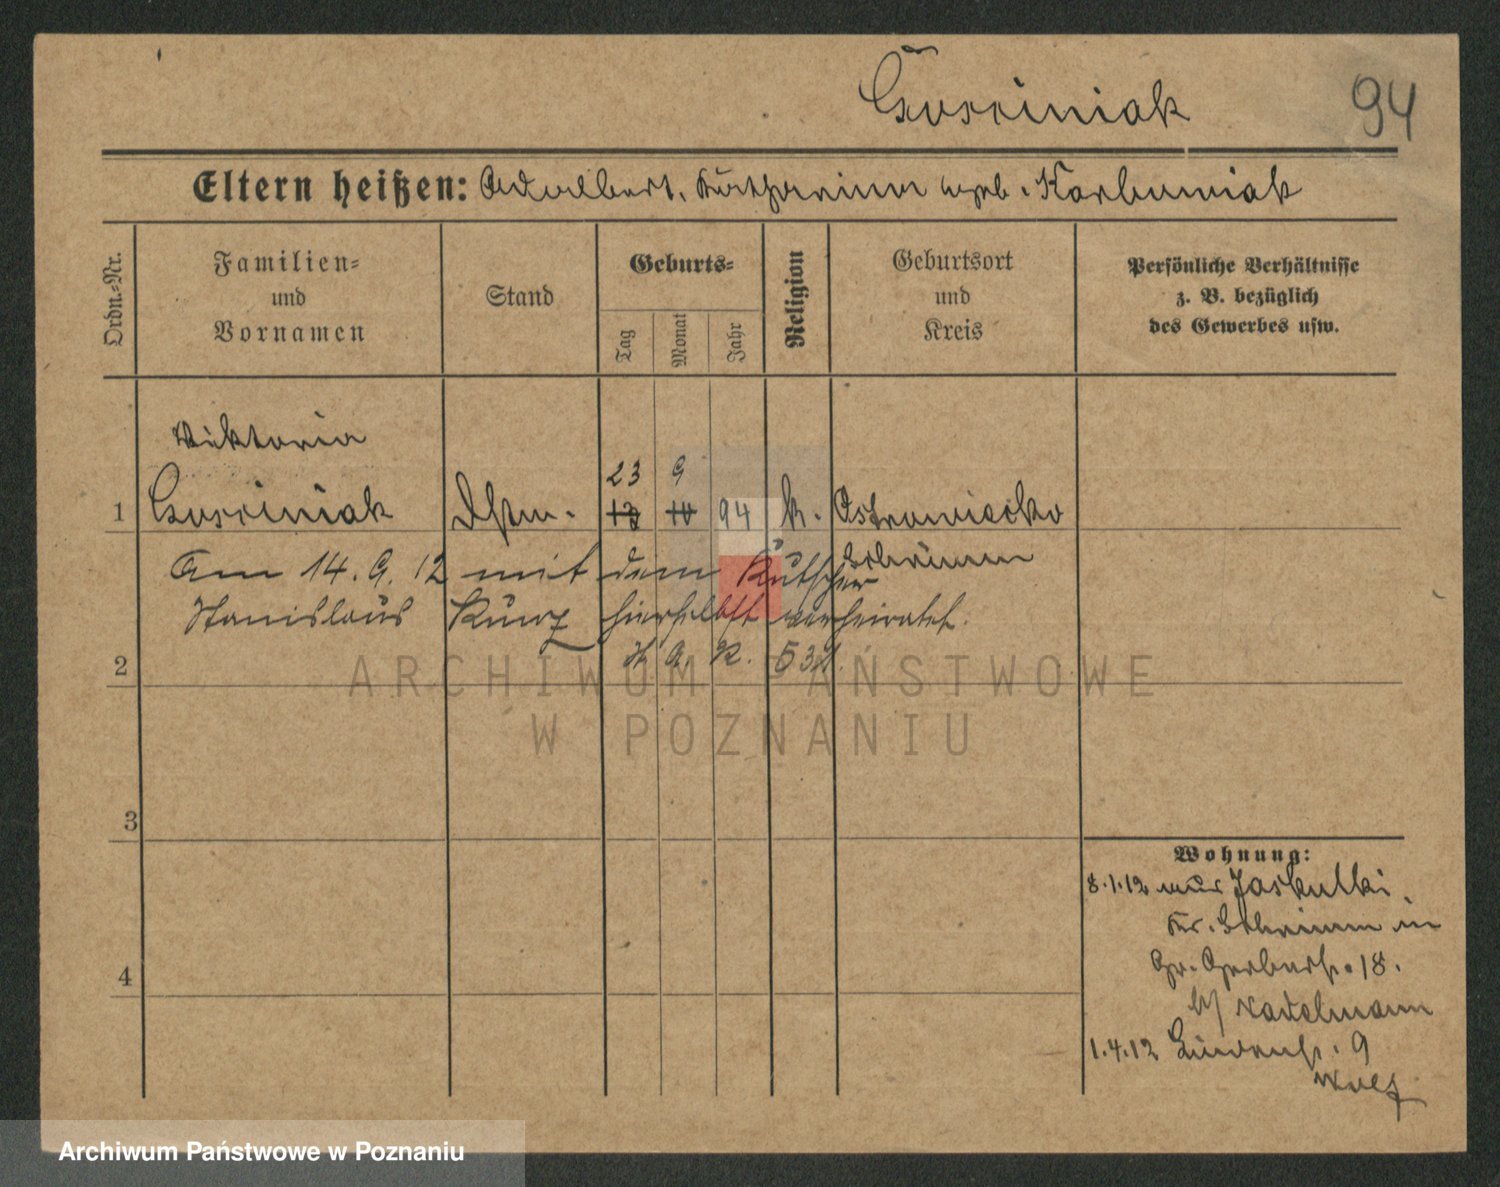 94
Eltern heißen: Adalbert, Katharina geb. Karbowniak
Ordn.-Nr.
Familien-
und
Vornamen
Stand
Geburts-
Tag
Monat
Jahr
Religion
Geburtsort
und
Kreis
Persönliche Verhältnisse
z. B. bezüglich
des Gewerbes usw.
Viktoria
23 9
1 Dstm. 13 10 94 k. Ostrowieczko
Schrimm
Am 14. 9. 12 mit dem Kutscher
Stanislaus hierselbst verheiratet.
2
ARCHIWUM PAŃSTWOWE
W POZNANIU
3
Wohnung:
8.1.12 aus Jaskulki
Kr. Schrimm in
Gr. Gerberstr. 18.
b/ Kadelmann
4
1.4.12 Lindenstr. 9
Archiwum Państwowe w Poznaniu